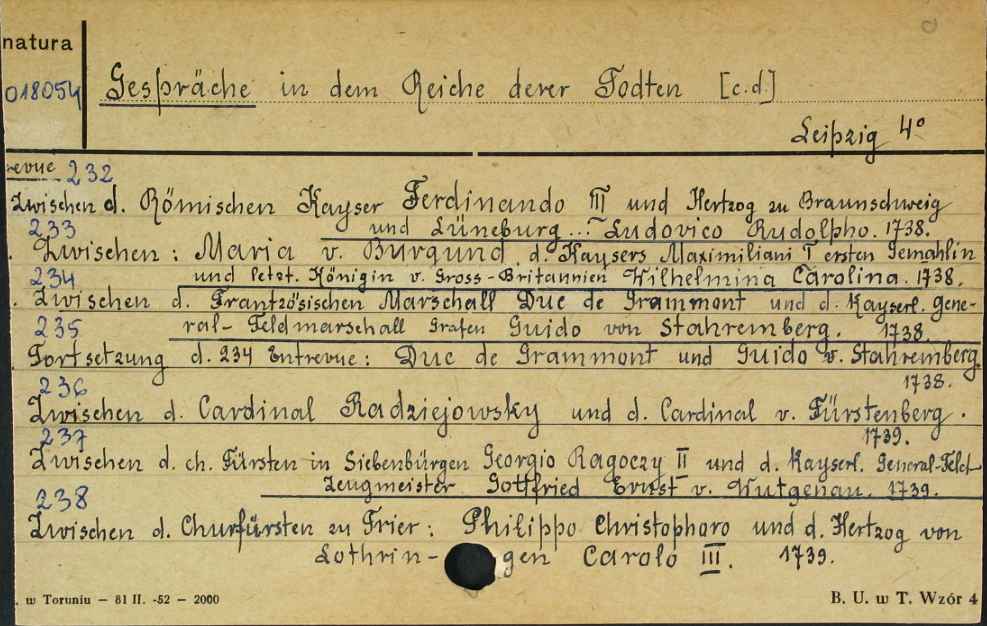 natura
018054
Gespräche in dem Reiche derer Todten [c.d.]
Leipzig 4°
revue 232
Zwischen d. Römischen Kayser Ferdinando III und Hertzog zu Braunschweig
und Lüneburg... Ludovico Rudolpho. 1738.
233
Zwischen: Maria v. Burgund, d. Kaysers Maximiliani I ersten Gemahlin
und letzt. Königin v. Gross-Britannien Wilhelmina Carolina. 1738.
234
Zwischen d. Frantzösischen Marschall Duc de Grammont und d. Kayserl. Gene-
ral-Feldmarschall Grafen Guido von Stahremberg. 1738.
235
Fortsetzung d. 234 Entrevue: Duc de Grammont und Guido v. Stahremberg.
1738.
236
Zwischen d. Cardinal Radziejowsky und d. Cardinal v. Fürstenberg.
1739.
237
Zwischen d. ch. Fürsten in Siebenbürgen Georgio Ragoczy II und d. Kayserl. General-Feld-
Zeugmeister Gottfried Ernst v. Wutgenau. 1739.
238
Zwischen d. Churfürsten zu Trier: Philippo Christophoro und d. Hertzog von
Lothrin-gen Carolo III. 1739.
. w Toruniu — 81 II. -52 — 2000
B. U. w T. Wzór 4